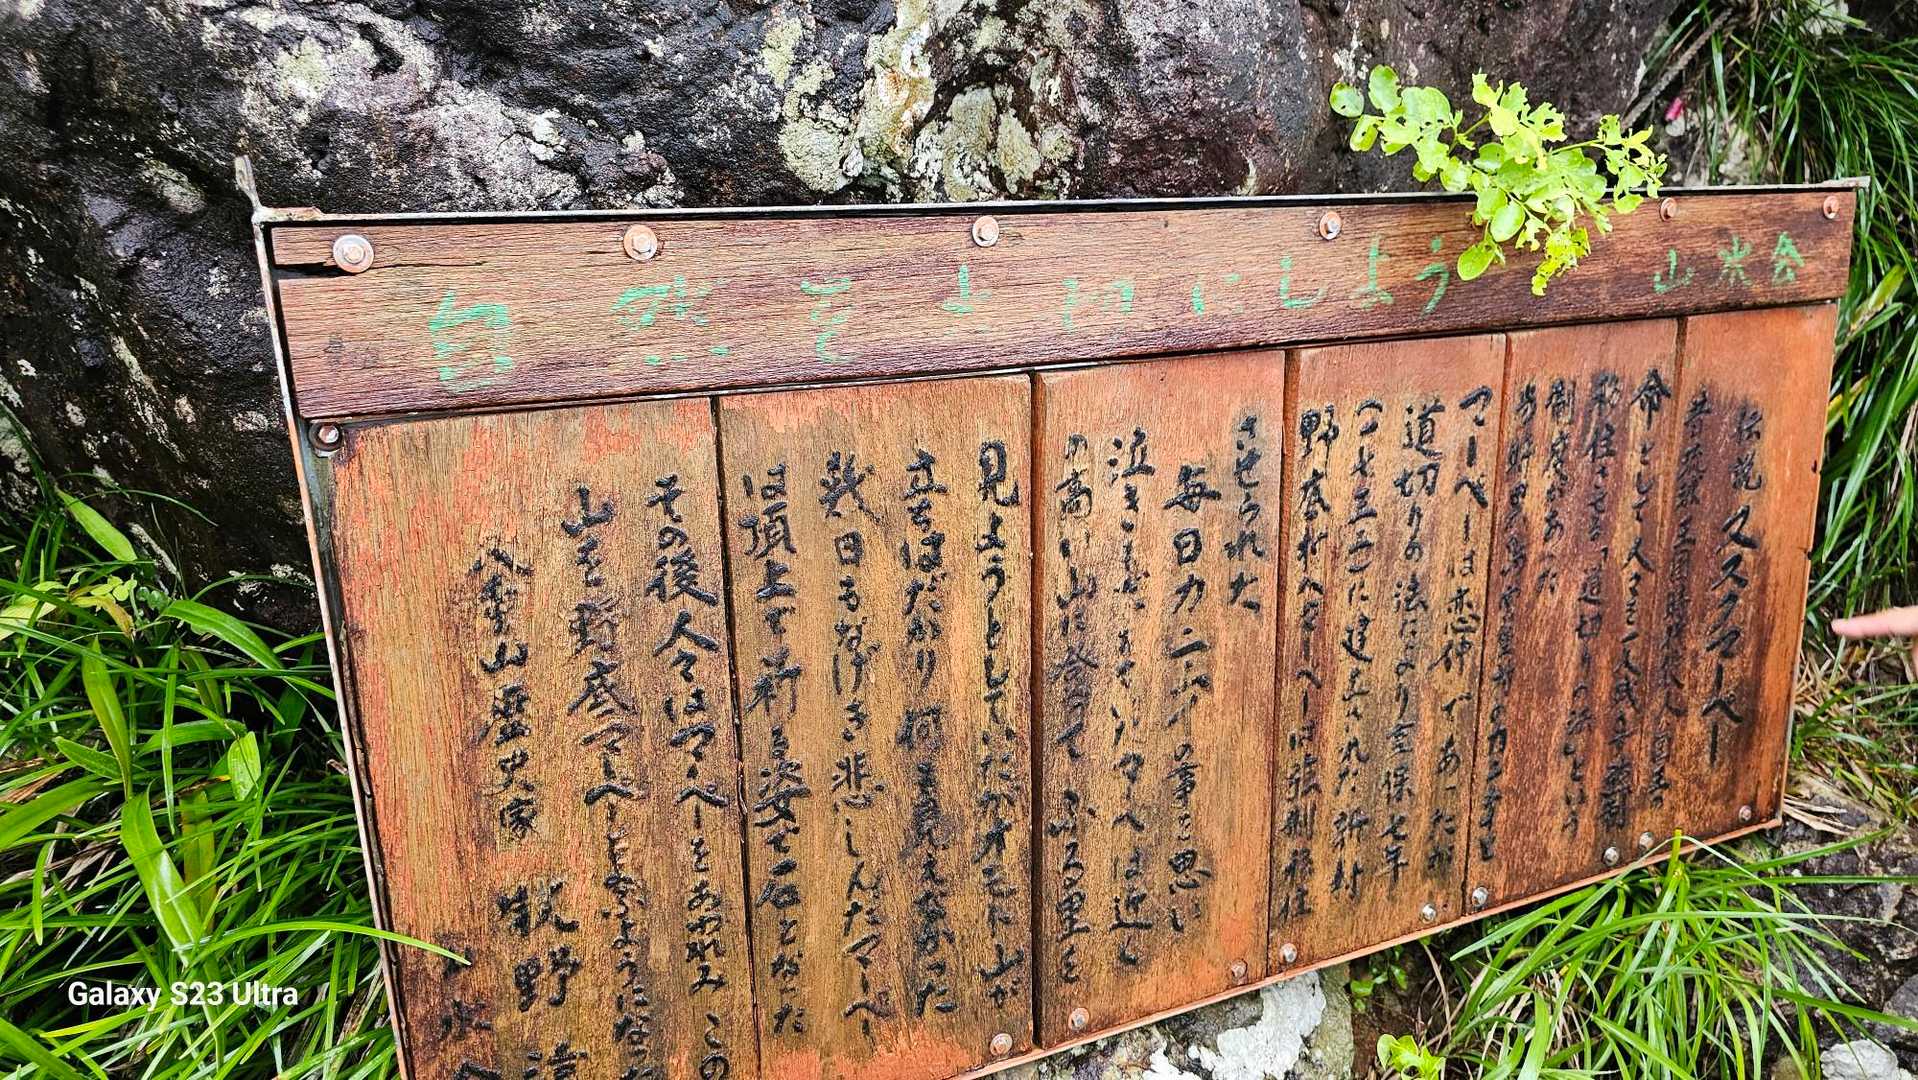 自然を大切にしよう 山
伝説 ヌスクマーペー
昔 琉球王国時代 国王の
命として人々を
移住させる「道切りの法」という
制度があった
当時黒島
マーペーは恋仲であったが
道切りの法により享保七年
(一七三二)に建立された新村
野底村へマーペーは強制移住
させられた
毎日カニムイの事を思い
泣きもだえていたマーペーは近く
の高い山に登って ふる里を
見ようとしていたがオモト山が
立ちはだかり何も見えなかった
幾日もなげき悲しんだマーペー
は頂上で祈る姿で石となった
その後人々はマーペーをあわれみ この
山を野底マーペーとよぶようになった
八重山歴史家 牧野 清
Galaxy S23 Ultra